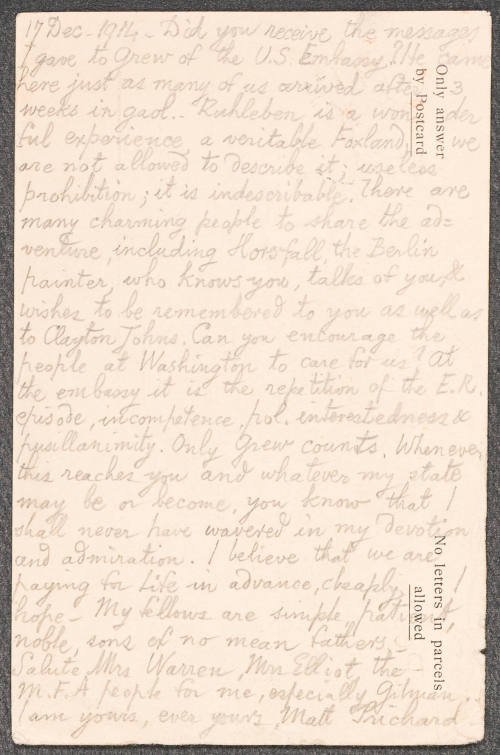 17 Dec. 1914. Did you receive the messages
I gave to Grew of the U.S. Embassy? He came
here just as many of us arrived after 3
weeks in gaol. Ruhleben is a wonder
ful experience, a veritable Foxland, we
are not allowed to describe it; useless
prohibition; it is indescribable. There are
many charming people to share the ad=
venture, including Horsfall, the Berlin
painter, who knows you, talks of you, &
wishes to be remembered to you as well as
to Clayton Johns. Can you encourage the
people at Washington to care for us? At
the embassy it is the repetition of the E.R.
episode, incompetence, pol. interestedness &
pusillanimity. Only Grew counts. Whenever
this reaches you and whatever my state
may be or become, you know that I
shall never have wavered in my devotion
and admiration. I believe that we are
paying for life in advance, cheaply, I
hope. My fellows are simple, patient,
noble, sons of no mean fathers.
Salute Mrs Warren, Mrs Elliot, the
M.F.A people for me, especially Gilman.
I am yours, ever yours, Matt Prichard
Only answer
by Postcard
No letters in parcels
allowed